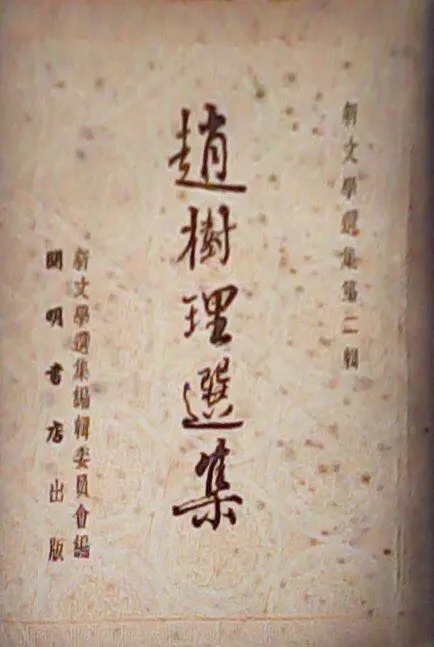 新文學選集第二輯
趙樹理選集
新文學選集編輯委員會編
開明書店出版